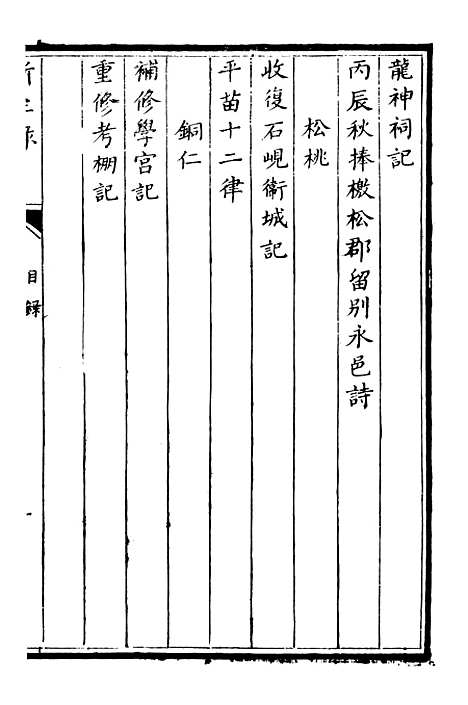 龍神祠記
丙辰秋捧檄松郡留別永邑詩
松桃
收復石峴衛城記
平苗十二律
銅仁
補修學宮記
重修考棚記
目錄